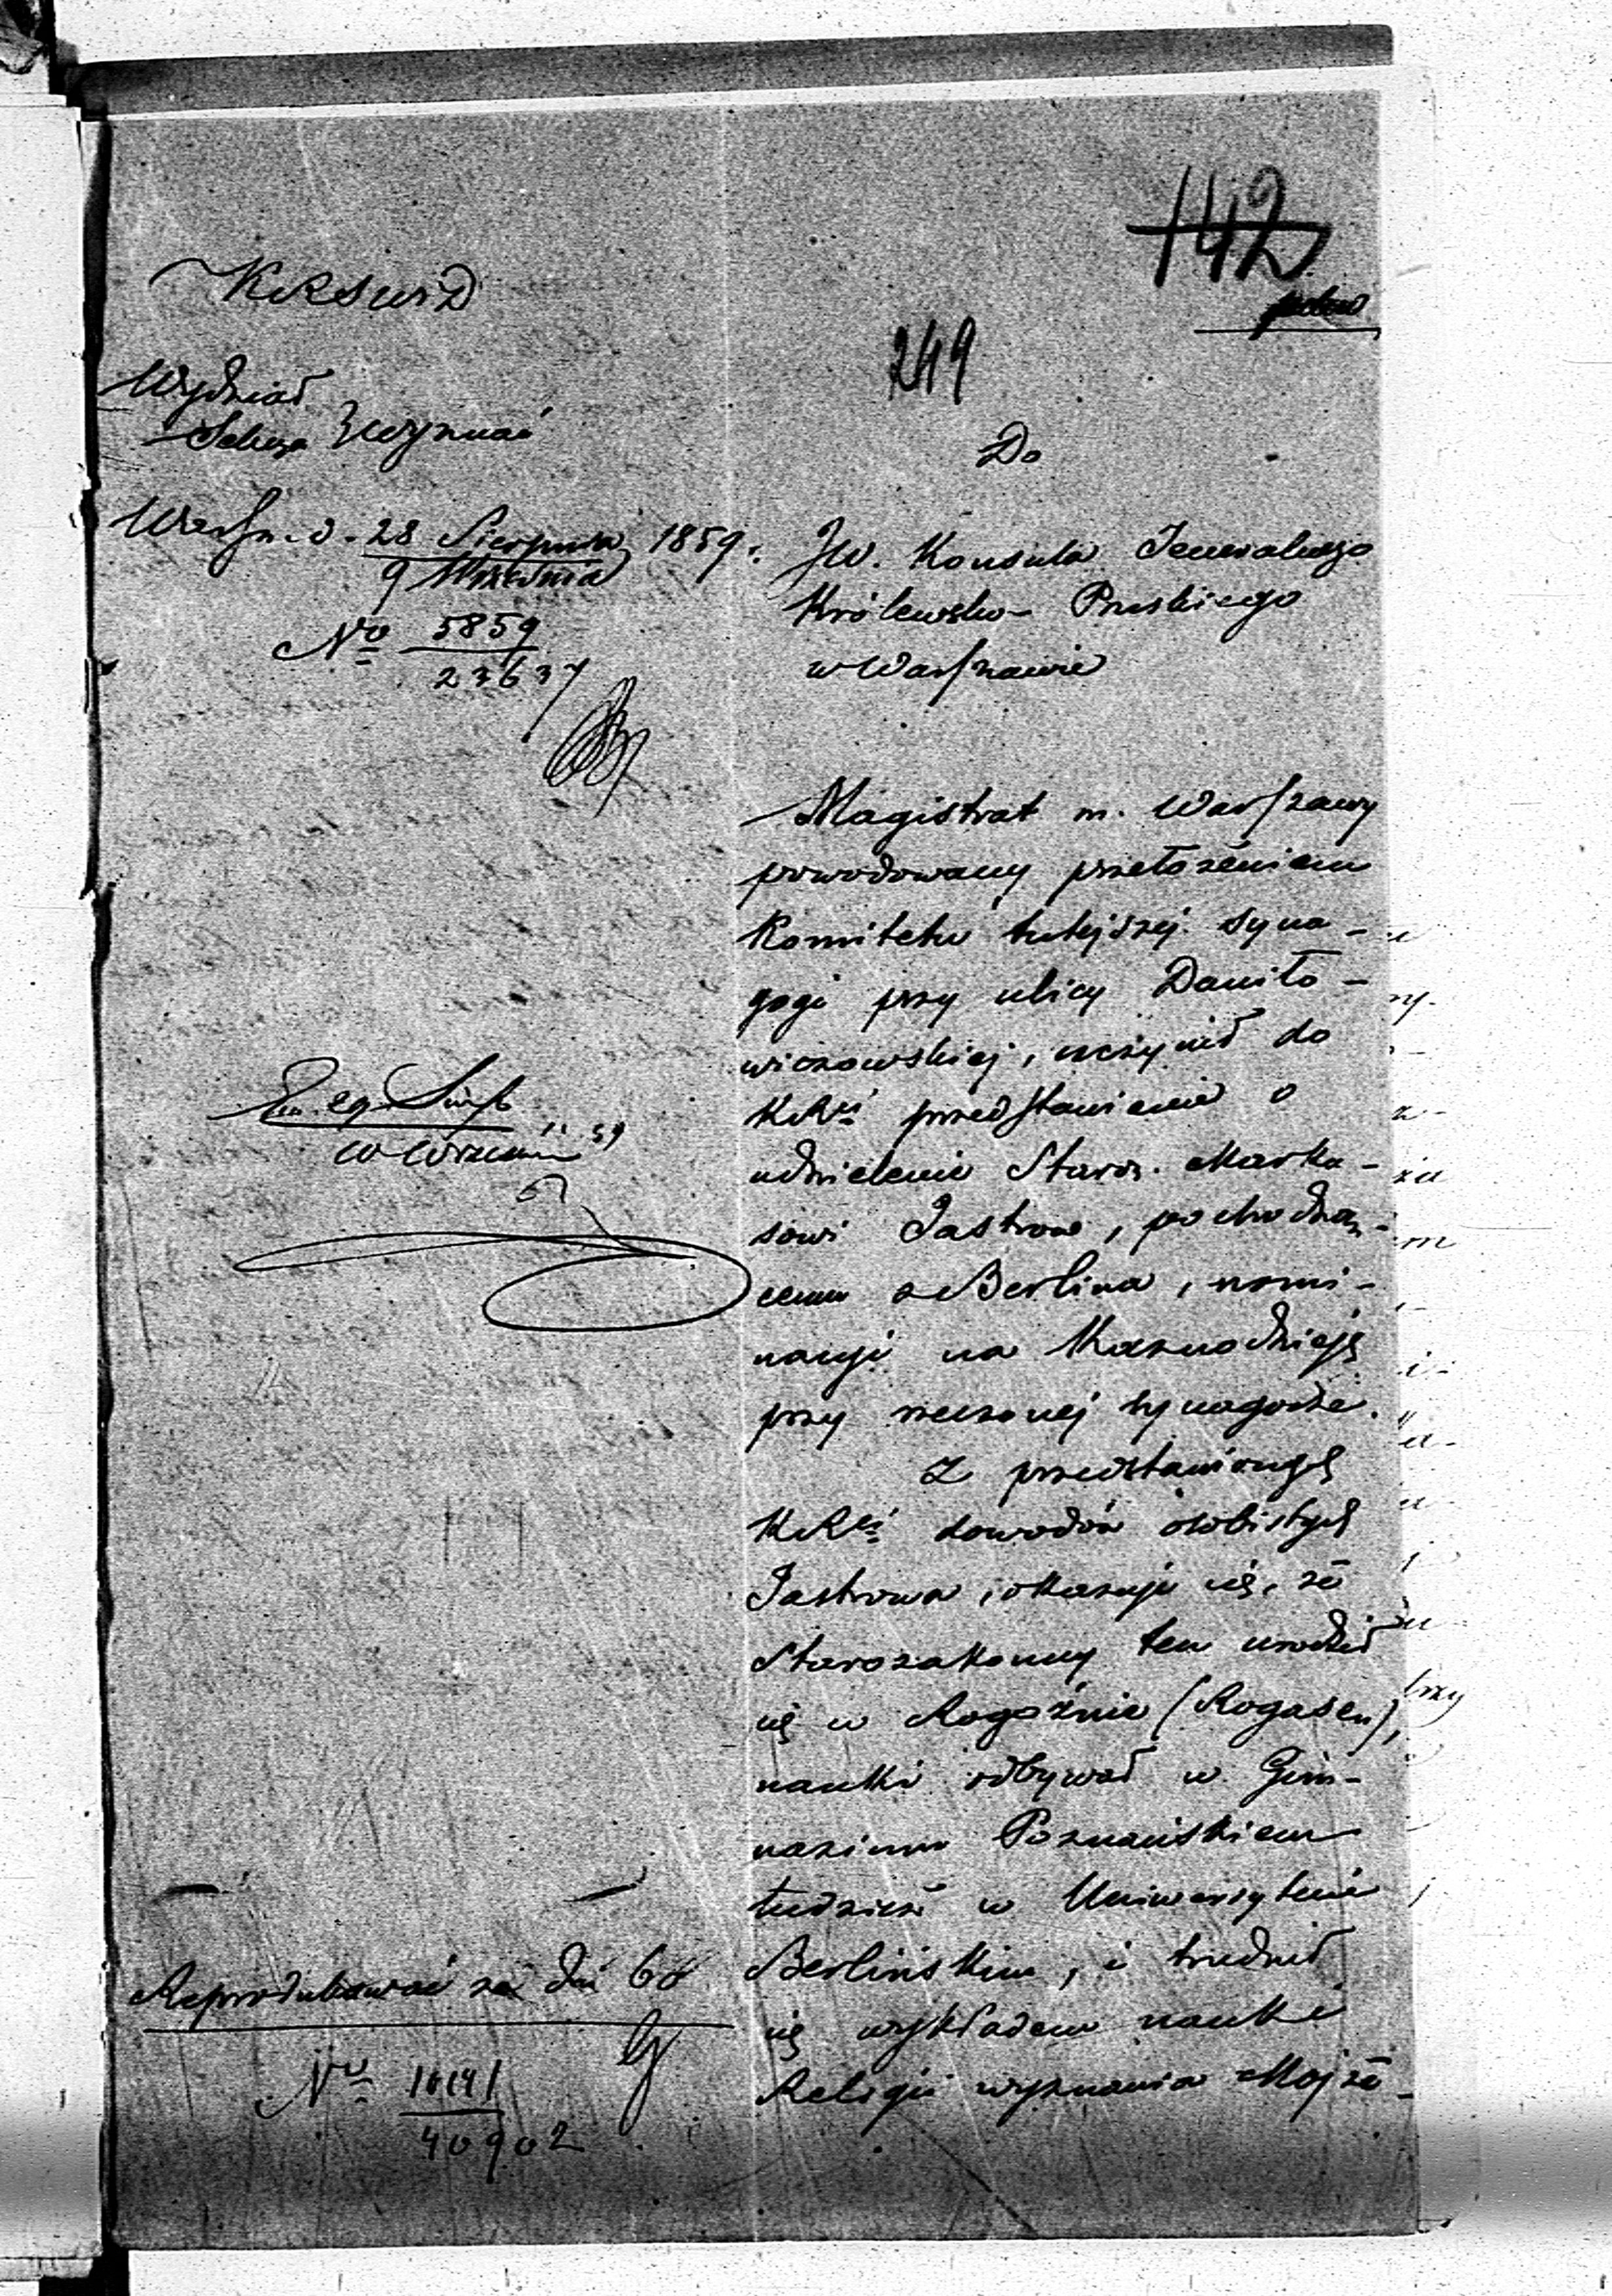 142
249
KRSWiD
Wydział
Sekcja Wyznań
Warsz. d. 28 Sierpnia 1859.
9 Września
No 5859
23637
Do
JW. Konsula Jeneralnego
Królewsko- Pruskiego
w Warszawie
Magistrat m. Warszawy
powodowany przełożeniem
Komitetu tutejszej syna-
gogi przy ulicy Daniło-
wiczowskiej, uczynił do
KRsi przedstawienie o
udzielenie Staroz. Marku-
sowi Jastrow, pochodzą-
cemu z Berlina, nomi-
nacyi na Kaznodzieję
przy rzeczonej synagodze.
Z przedstawionych
KRsi dowodów osobistych
Jastrowa, okazuje się, że
Starozakonny ten urodził
się w Rogoźnie (Rogasen),
nauki odbywał w Gim-
nazium Poznańskiem
tudzież w Uniwersytecie
Berlińskim, i trudnił
się wykładem nauki
Religii wyznania Mojże-
Września 59
Reprodukować za dni 60
No
40902